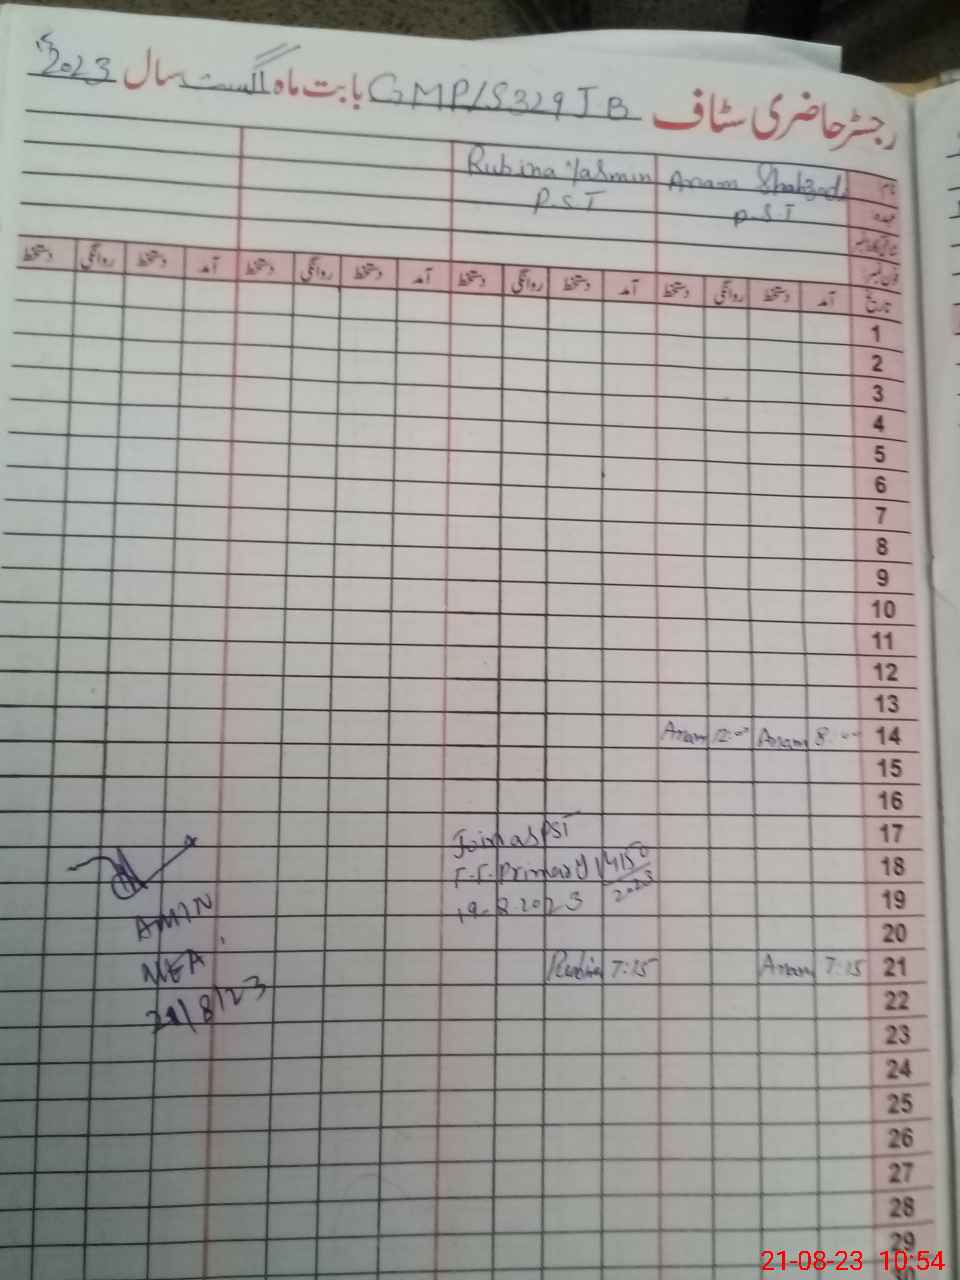 رجسٹر حاضری سٹاف GMP/S 329 JB بابت ماہ اگست سال 2023
نام Anam Shahzadi Rubina Yasmin
عہدہ P.S.T P.S.T
تاریخ آمد دستخط روانگی دستخط آمد دستخط روانگی دستخط آمد دستخط روانگی دستخط آمد دستخط روانگی دستخط
1
2
3
4
5
6
7
8
9
10
11
12
13
14 8:00 Anam 12:00 Anam
15
16
17
18
19
20
21 7:15 Anam 7:15 Rubina
22
23
24
25
26
27
28
29
Join as PST
Primary 14150
2023
19-8-2023
AMIN
MEA
21/8/23
21-08-23 10:54